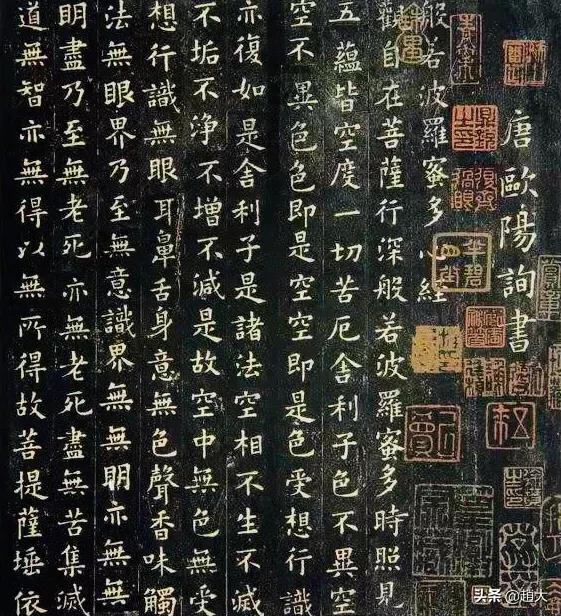 唐歐陽詢書
般若波羅蜜多心經
觀自在菩薩行深般若波羅蜜多時照見
五蘊皆空度一切苦厄舍利子色不異空
空不異色色即是空空即是色受想行識
亦復如是舍利子是諸法空相不生不滅
不垢不淨不增不減是故空中無色無受
想行識無眼耳鼻舌身意無色聲香味觸
法無眼界乃至無意識界無無明亦無無
明盡乃至無老死亦無老死盡無苦集滅
道無智亦無得以無所得故菩提薩埵依
头条 @趙大